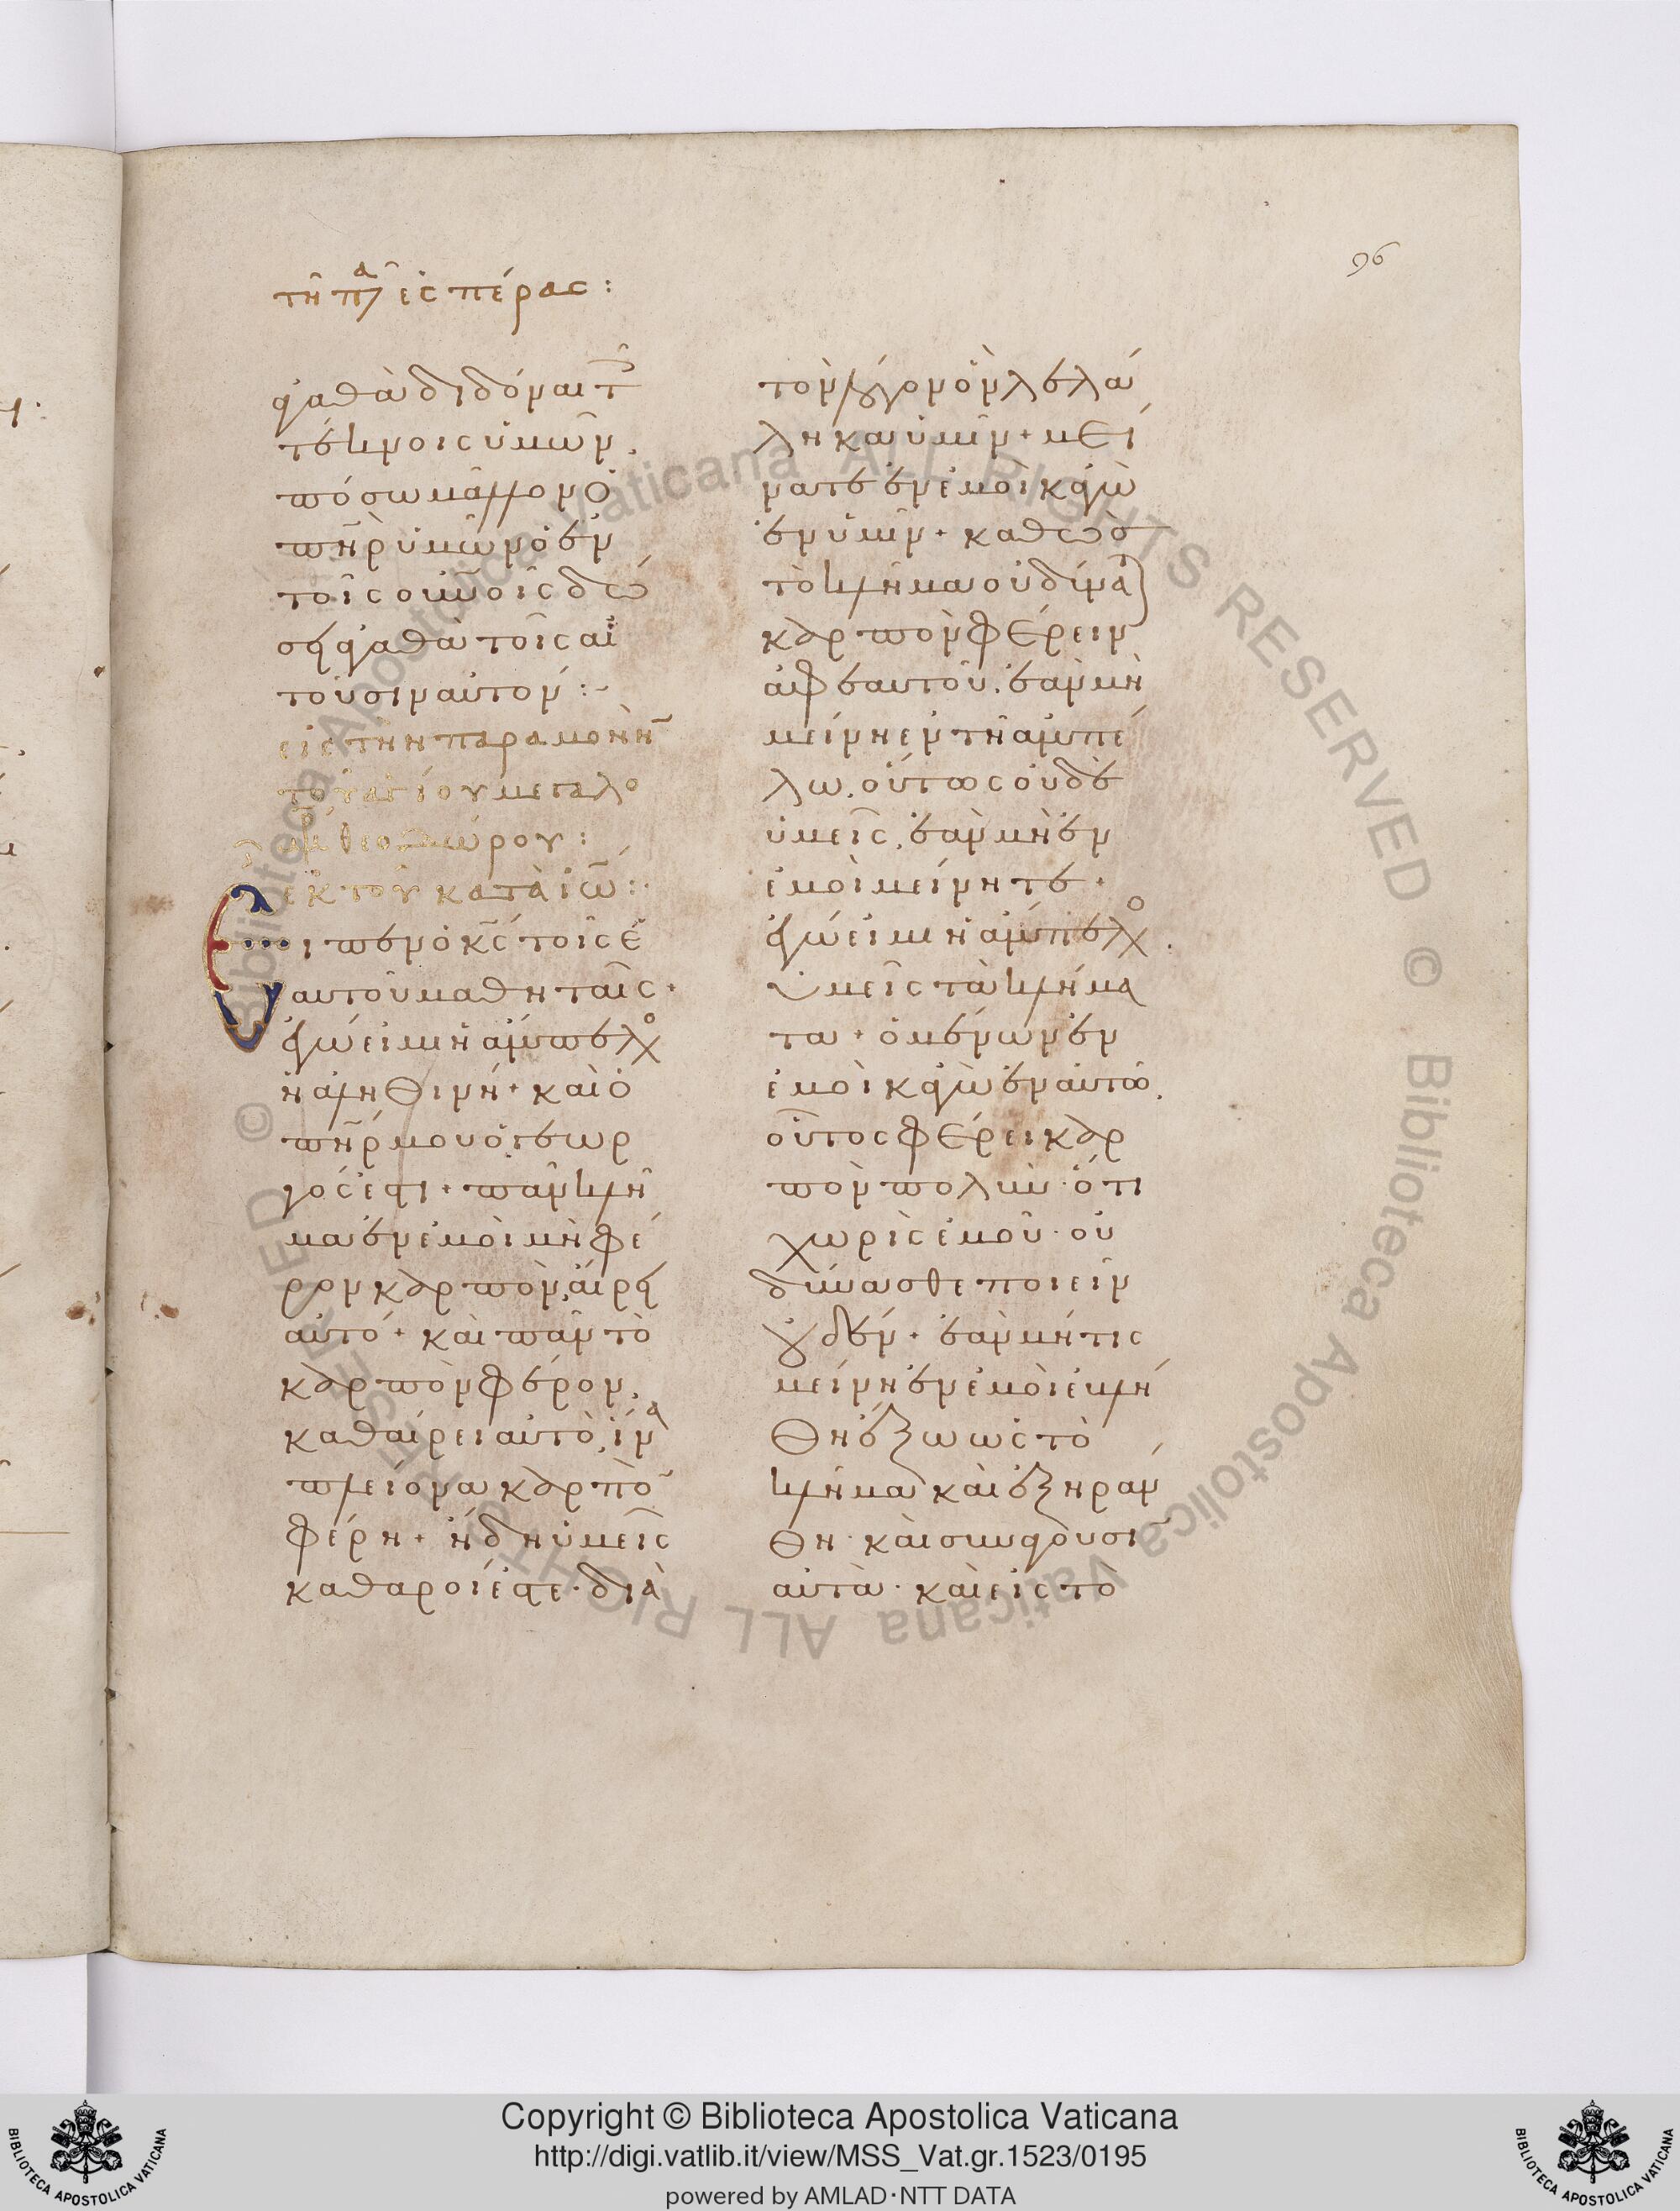 96
τῆ π͞λα ἑσπέρας :
ἀγαθὰ διδόναι τοῖ
τέκνοις ὑμῶν.
πόσω μᾶλλον ὁ
π͞ηρ ὑμῶν ὁ ἐν
τοῖς οὐ͞νοῖς δώ
σει ἀγαθὰ τοῖς αἰ
τοῦσιν αὐτόν :~
εἰς τὴν παραμονὴ̄
τοῦ ἁγίου μεγαλο
μρ θεοδώρου :
ἐκ τοῦ κατὰ ἰω̄ :·
Εἶπεν ὁ κ͞ς τοῖς ἑ
αυτοῦ μαθηταῖς +
ἐγώ εἰμι ἡ ἄμπελο
ἡ ἀληθινή + καὶ ὁ
π͞ηρ μου ὁ γεωρ
γός ἐστι + πᾶν κλῆ
μα ἐν ἐμοὶ μὴ φέ
ρον καρπὸν, αἴρει
αὐτό + καὶ πᾶν τὸ
καρπὸν φέρον,
καθαίρει αὐτὸ, ἵνα
πλείονα καρπὸ̄
φέρη + ἤδη ὑμεῖς
καθαροί ἐστε · διὰ
τὸν λόγον ὃν λελά
ληκα ὑμῖν + μεί
νατε ἐν ἐμοὶ κἀγὼ
ἐν ὑμῖν + καθὼς
τὸ κλῆμα οὐ δύνα)
καρπὸν φέρειν
ἀφ ἑαυτοῦ. ἐὰν μὴ
μείνη ἐν τῆ ἀμπέ
λω. οὕτως οὐδὲ
ὑμεῖς. ἐὰν μὴ ἐν
ἐμοὶ μείνητε +
ἐγώ εἰμι ἡ ἄμπελο.
ὑμεῖς τὰ κλήμα
τα + ὁ μένων ἐν
ἐμοὶ κἀγὼ ἐν αὐτῶ.
οὗτος φέρει καρ
πὸν πολύν · ὅτι
χωρὶς ἐμοῦ · οὐ
δύνασθε ποιεῖν
οὐδέν + ἐὰν μή τις
μείνη ἐν ἐμοὶ ἐκλή
θη ἔξω ὡς τὸ
κλῆμα καὶ ἐξηράν
θη · καὶ συνάγουσῑ
αὐτὰ · καὶ εἰς τὸ
Copyright © Biblioteca Apostolica Vaticana
http://digi.vatlib.it/view/MSS_Vat.gr.1523/0195
powered by AMLAD·NTT DATA
BIBLIOTECA APOSTOLICA VATICANA
BIBLIOTECA APOSTOLICA VATICANA
© Biblioteca Apostolica Vaticana ALL RIGHTS RESERVED © Biblioteca Apostolica Vaticana ALL RIGHTS RESERVED